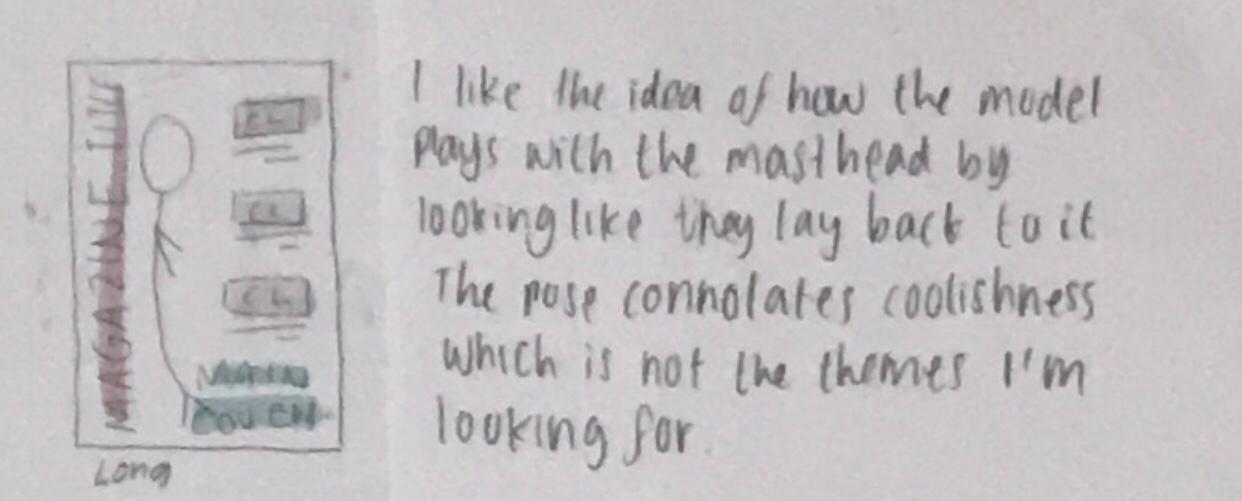 MAGAZINE TITLE
CL
CL
CL
MAIN
COVER
Long
I like the idea of how the model
plays with the masthead by
looking like they lay back to it
The pose connotates coolishness
which is not the themes I'm
looking for.